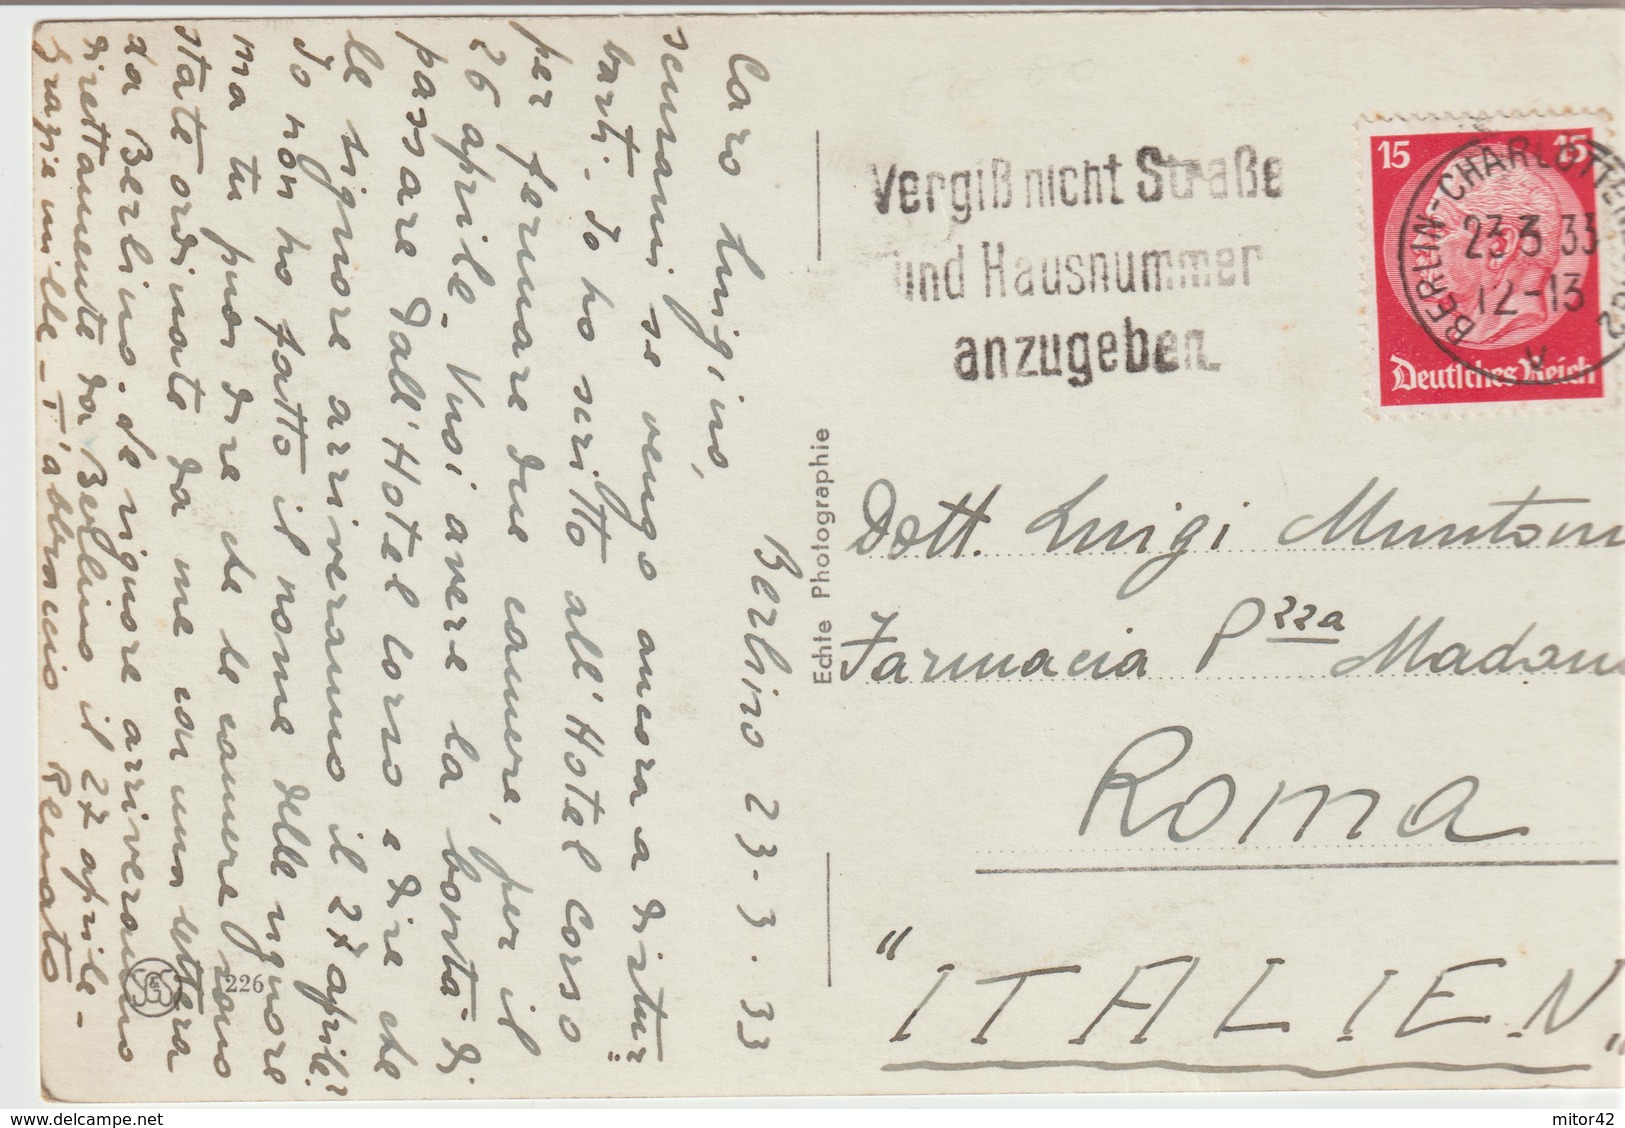 Berlino 23.3.33
Caro Luigino,
scusami se vengo ancora a distur=
barti. Io ho scritto all'Hotel Corso
per fermare due camere, per il
26 aprile. Vuoi avere la bontà di
passare dall'Hotel Corso e dire che
le signore arriveranno il 27 aprile?
Io non ho fatto il nome delle signore
ma tu puoi dire che le camere sono
state ordinate da me con una lettera
da Berlino. Le signore arriveranno
direttamente da Berlino il 27 aprile-
Grazie mille - T'abbraccio Renato
226
Echte Photographie
Vergiß nicht Straße
und Hausnummer
anzugeben.
15 15
Deutsches Reich
BERLIN-CHARLOTTENBURG 2
23.3.33
12-13
Dott. Luigi Muntoni
Farmacia Pzza Madonn
ROMA
"ITALIEN"
mitor42